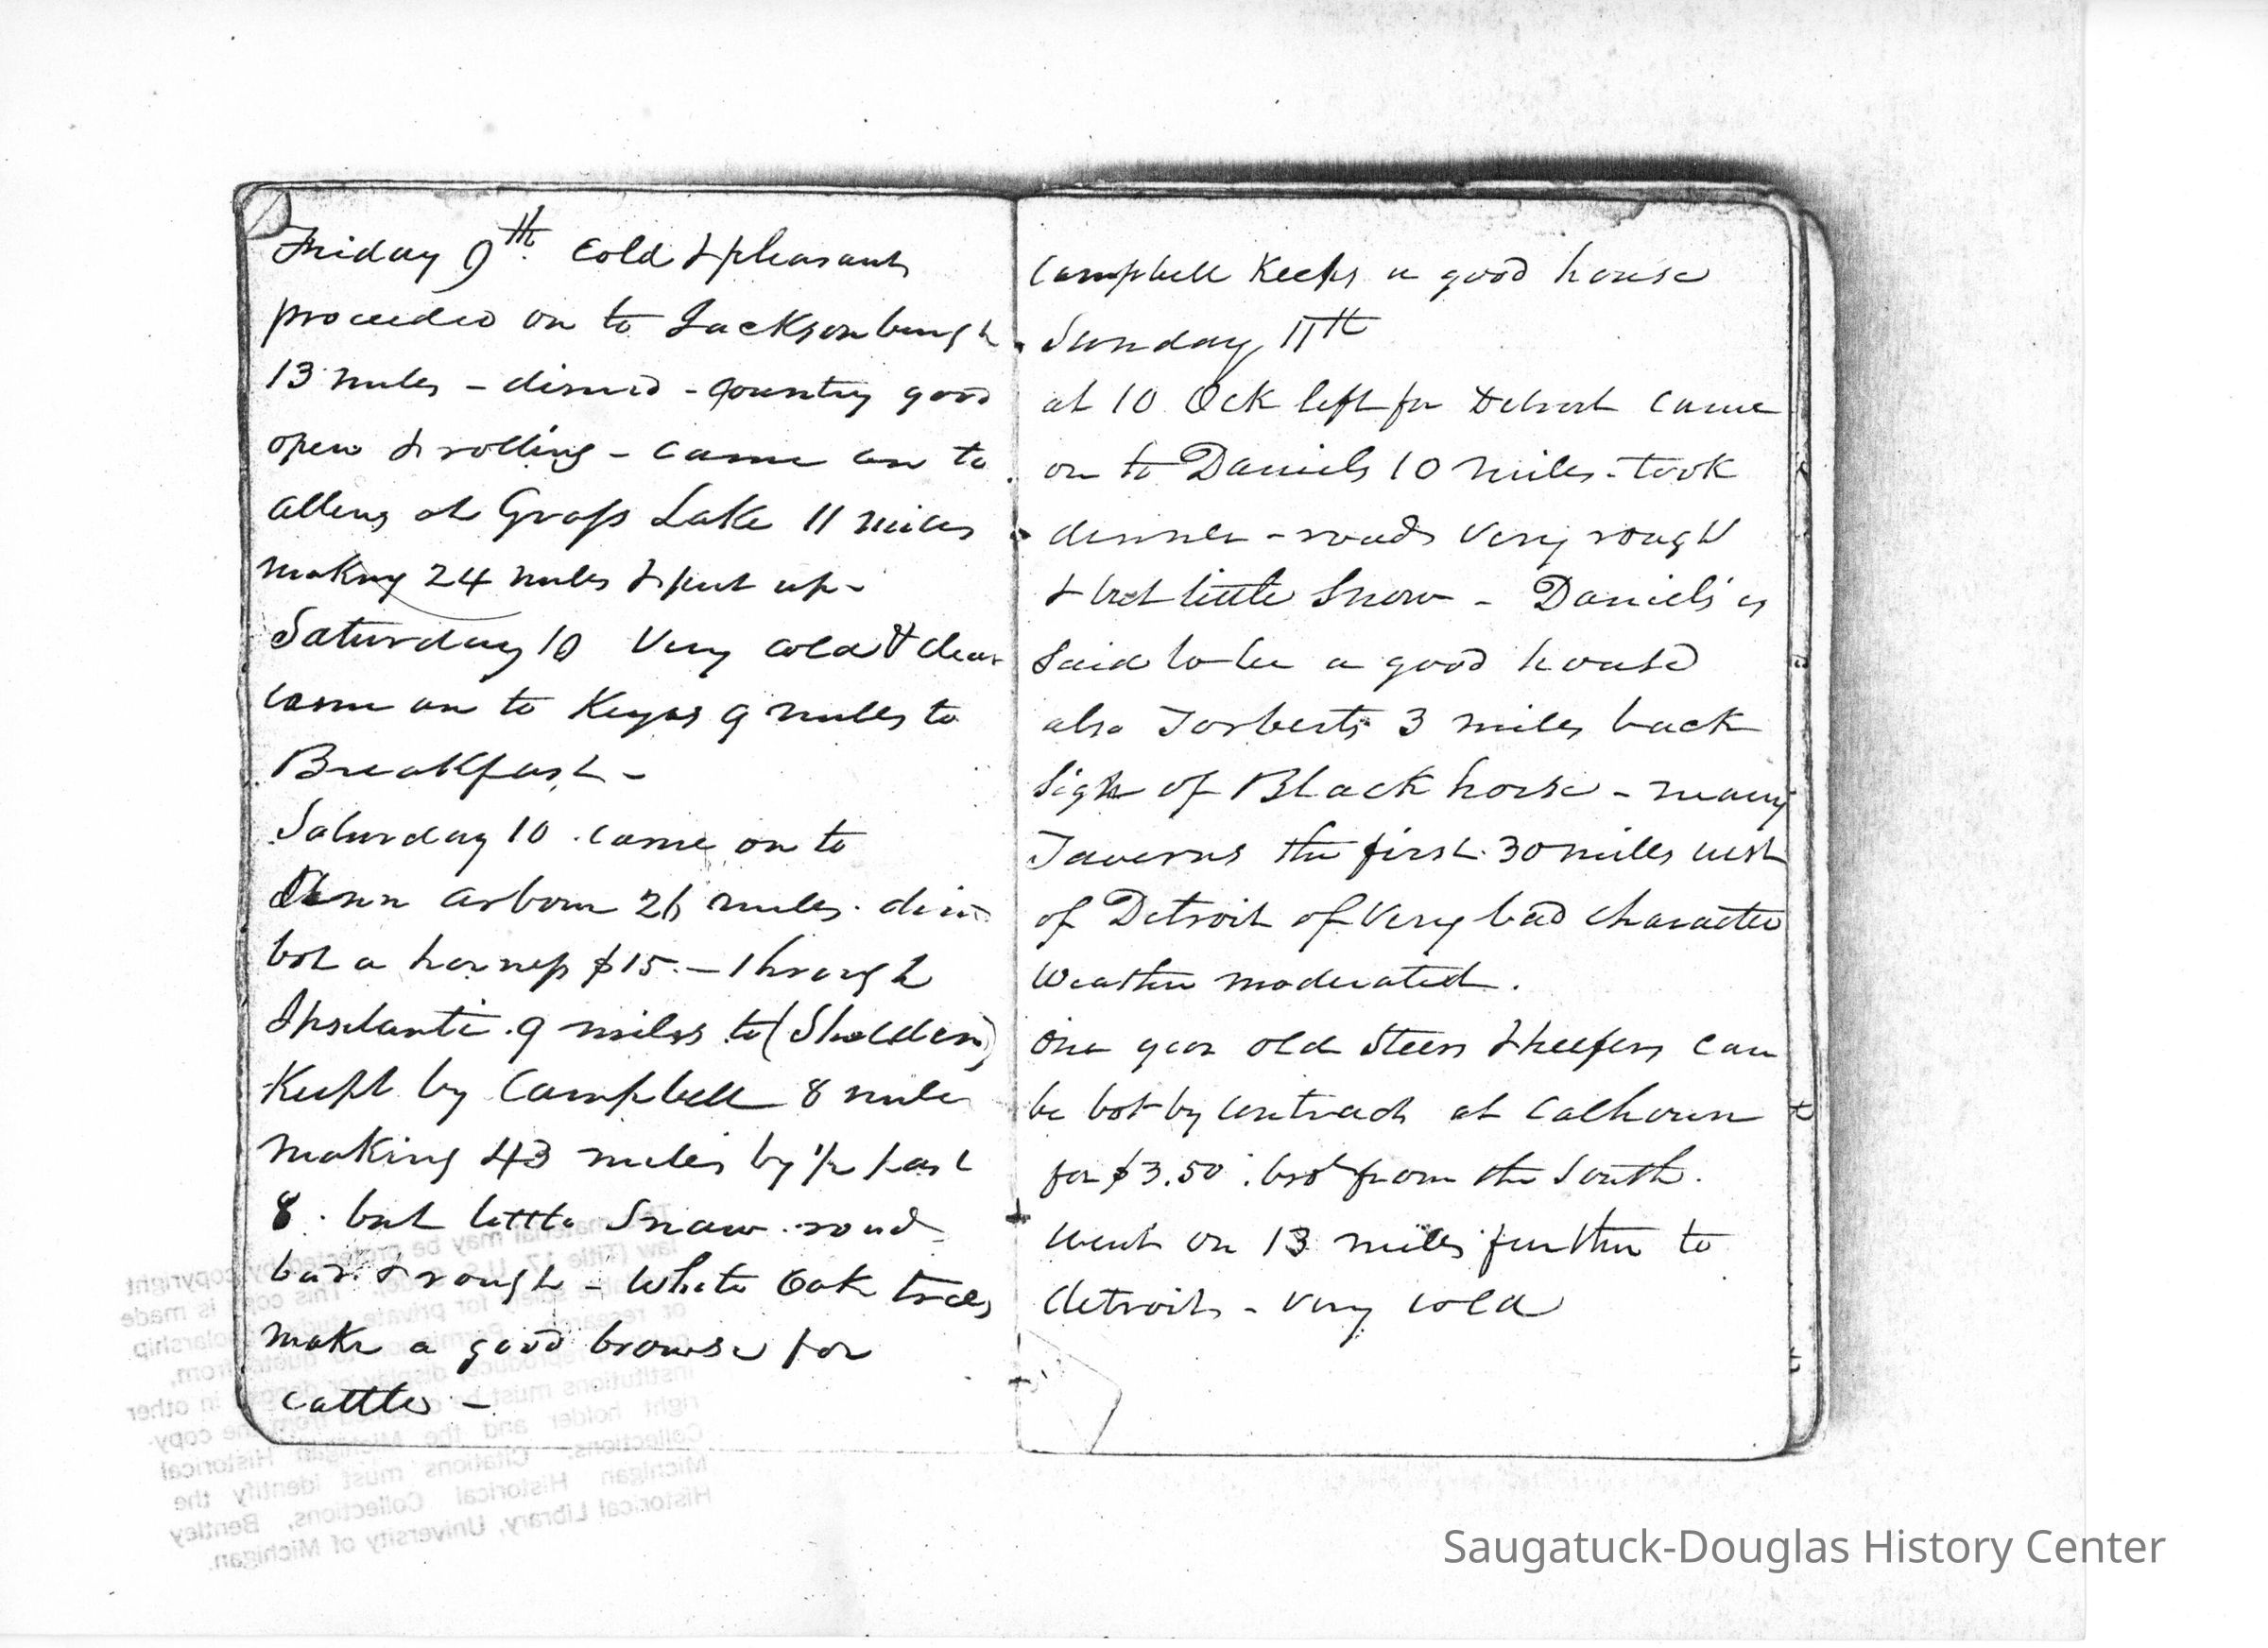 Friday 9th. Cold & pleasant
proceeded on to Jacksonburgh
13 miles - dined - country good
open & rolling - came on to
Allens at Grass Lake 11 miles
making 24 miles & put up -
Saturday 10 Very cold & clear
came on to Keyes 9 miles to
Breakfast -
Saturday 10 came on to
Ann arbour 26 miles. din
bot a harness $15. - through
Ipsilanti. 9 miles to (Sheldens)
Kept by Campbell 8 mile
making 43 miles by 1/2 past
8. but little Snow. road
bar. & rough - White Oak trees
make a good browse for
cattle -
Campbell Keeps a good house
Sunday 11th
at 10 Ock left for Detroit came
on to Daniels 10 miles - took
dinner - roads very rough
& but little Snow - Daniels is
Said to be a good house
also Torberts 3 miles back
Sign of Black horse - many
Taverns the first 30 miles west
of Detroit of Very bad character
Weather moderated.
one year old Steers & heefers can
be bot by contract at Calhoun
for $3.50. brot from the South.
went on 13 miles further to
detroit - very cold
This material may be protected by copyright
law (Title 17 U.S. Code). This copy is made
for private study, scholarship
or research. Permission to quote from,
reproduce, display or in other
institutions must be from the copy-
right holder and the Michigan Historical
Collections. Citations must identify the
Michigan Historical Collections, Bentley
Historical Library, University of Michigan.
Saugatuck-Douglas History Center